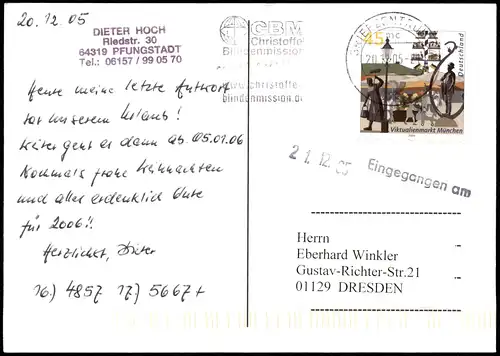 20.12.05
DIETER HOCH
Riedstr. 30
64319 PFUNGSTADT
Tel.: 06157 / 99 05 70
CBM
Christoffel
Blindenmission
www.christoffel
blindenmission.de
BRIEFZENTRUM
20.12.05
45
Deutschland
Viktualienmarkt München
21.12.05 Eingegangen am
Heute meine letzte Antwort
vor unserem Urlaub!
Weiter geht es dann ab 05.01.06
Nochmals frohe Weihnachten
und alles erdenklich Gute
für 2006!!
Herzlichst, Dieter
16.) 4857 17.) 5667+
Herrn
Eberhard Winkler
Gustav-Richter-Str.21
01129 DRESDEN